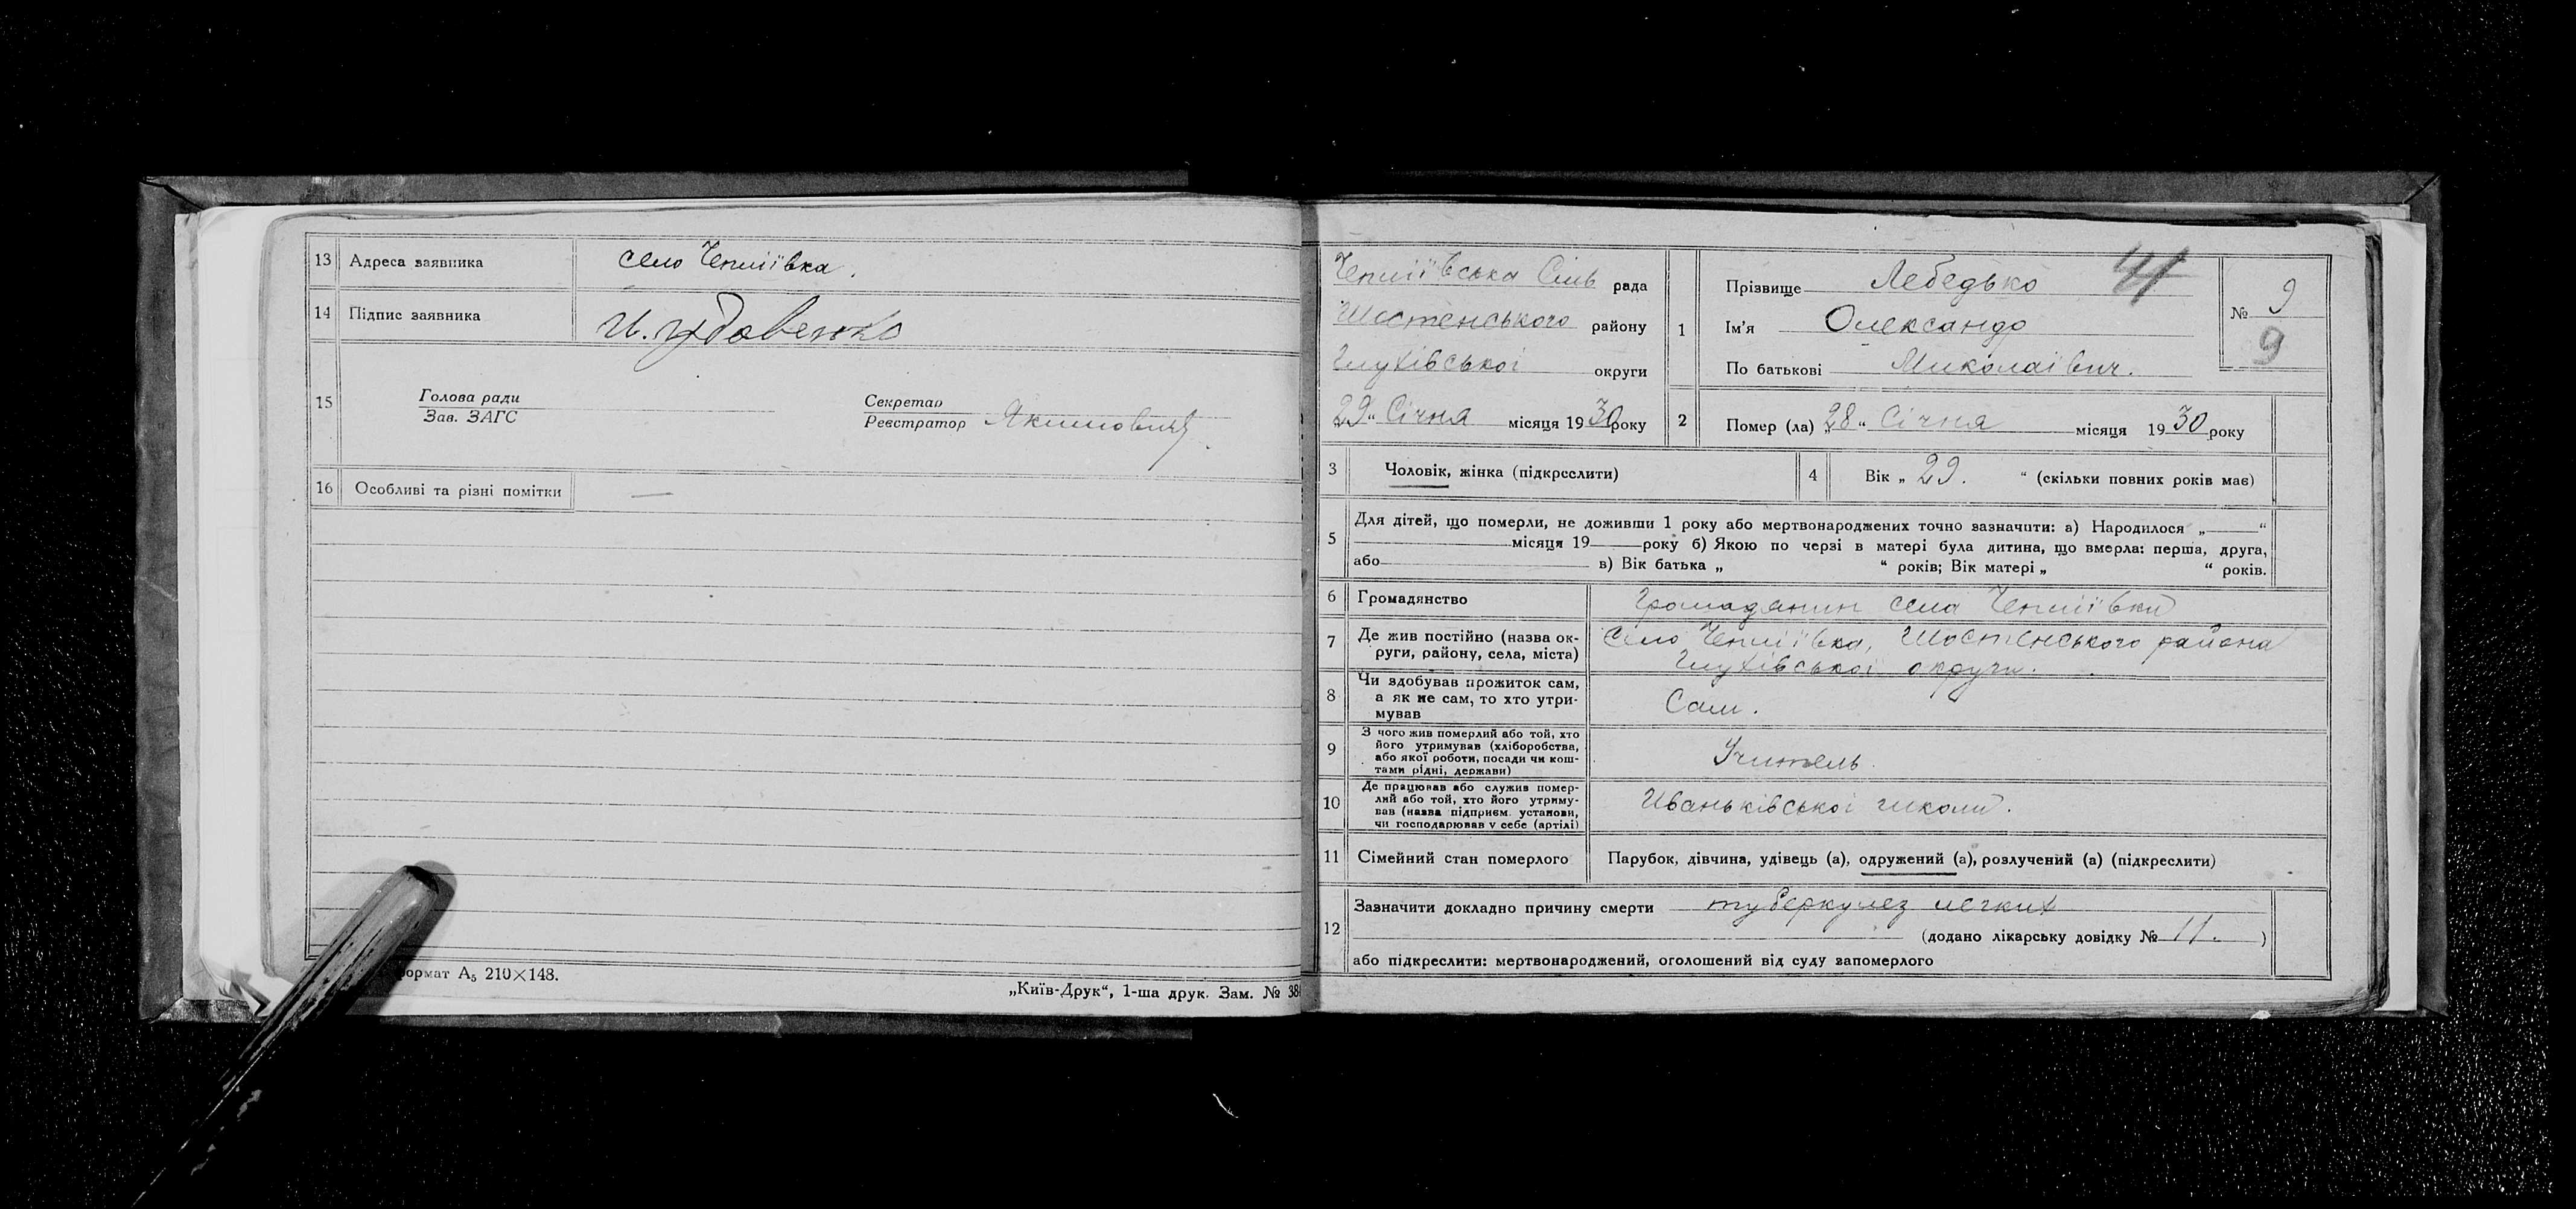 13 Адреса заявника село Чепліївка.
14 Підпис заявника И. Удовенко
15 Голова ради Секретар
Зав. ЗАГС Реєстратор Якимович
16 Особливі та різні помітки —
формат А5 210×148.
„Київ-Друк“, 1-ша друк. Зам. № 38
Чепліївська Сіль рада
Шостенського району
Глухівської округи
29 “ Січня місяця 1930 року
1 Прізвище Лебедько 41
Ім’я Олександр
По батькові Миколаївич.
№ 9
9
2 Помер (ла) „28 “ Січня місяця 1930 року
3 Чоловік, жінка (підкреслити)
4 Вік „ 29. “ (скільки повних років має)
5 Для дітей, що померли, не доживши 1 року або мертвонароджених точно зазначити: а) Народилося „ “
місяця 19 року б) Якою по черзі в матері була дитина, що вмерла: перша, друга,
або в) Вік батька „ “ років; Вік матері „ “ років.
6 Громадянство Громадянин села Чепліївки
7 Де жив постійно (назва ок- Село Чепліївка, Шостенського района
руги, району, села, міста) Глухівської округи.
8 Чи здобував прожиток сам,
а як не сам, то хто утри- Сам.
мував
9 З чого жив померлий або той, хто
його утримував (хліборобства,
або якої роботи, посади чи кош- Учитель
тами рідні, держави)
10 Де працював або служив помер-
лий або той, хто його утриму- Иваньківської школи.
вав (назва підприєм. установи,
чи господарював у себе (артілі)
11 Сімейний стан померлого Парубок, дівчина, удівець (а), одружений (а), розлучений (а) (підкреслити)
12 Зазначити докладно причину смерти туберкулез легких
(додано лікарську довідку № 11. )
або підкреслити: мертвонароджений, оголошений від суду запомерлого